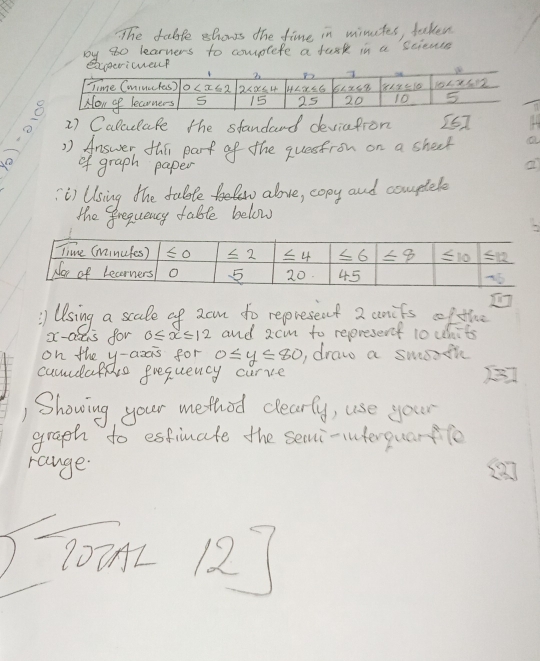 The table shows the time in minutes, taken
by 80 learners to complete a task in a Science
experiment
Time (minutes) 0<x≤2 2<x≤4 4<x≤6 6<x≤8 8<x≤10 10<x≤12
No of learners 5 15 25 20 10 5
Calculate the standard deviation [5]
Answer this part of the question on a sheet
of graph paper
i) Using the table below above, copy and complete
the frequency table below
Time (minutes) ≤0 ≤2 ≤4 ≤6 ≤8 ≤10 ≤12
No of Learners 0 5 20 45
[1]
Using a scale of 2cm to represent 2 units of the
x-axis for 0≤x≤12 and 2cm to represent 10 units
on the y-axis for 0≤y≤80, draw a smooth
cumulative frequency curve [3]
Showing your method clearly, use your
graph to estimate the semi-interquartile
range. [2]
[TOTAL 12]